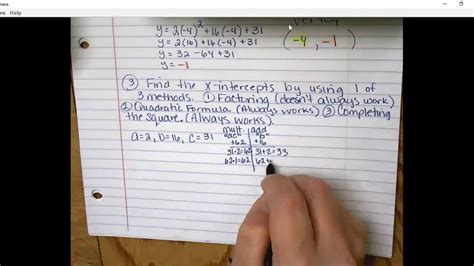 y = 2(-4)² + 16(-4) + 31
y = 2(16) + 16(-4) + 31
y = 32 - 64 + 31
y = -1
(-4, -1)
③ Find the x-intercepts by using 1 of
3 methods. ① Factoring (doesn't always work)
② Quadratic Formula (Always works) ③ Completing
the Square. (Always works).
a=2, b=16, c=31
mult. add
"ac" "b"
+62 +16
31·2=62 31+2=33
62·1=62 62+